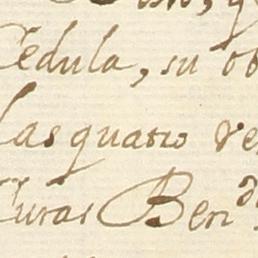 Cedula, su ob
Las quatro Ve
Curas Ben.d